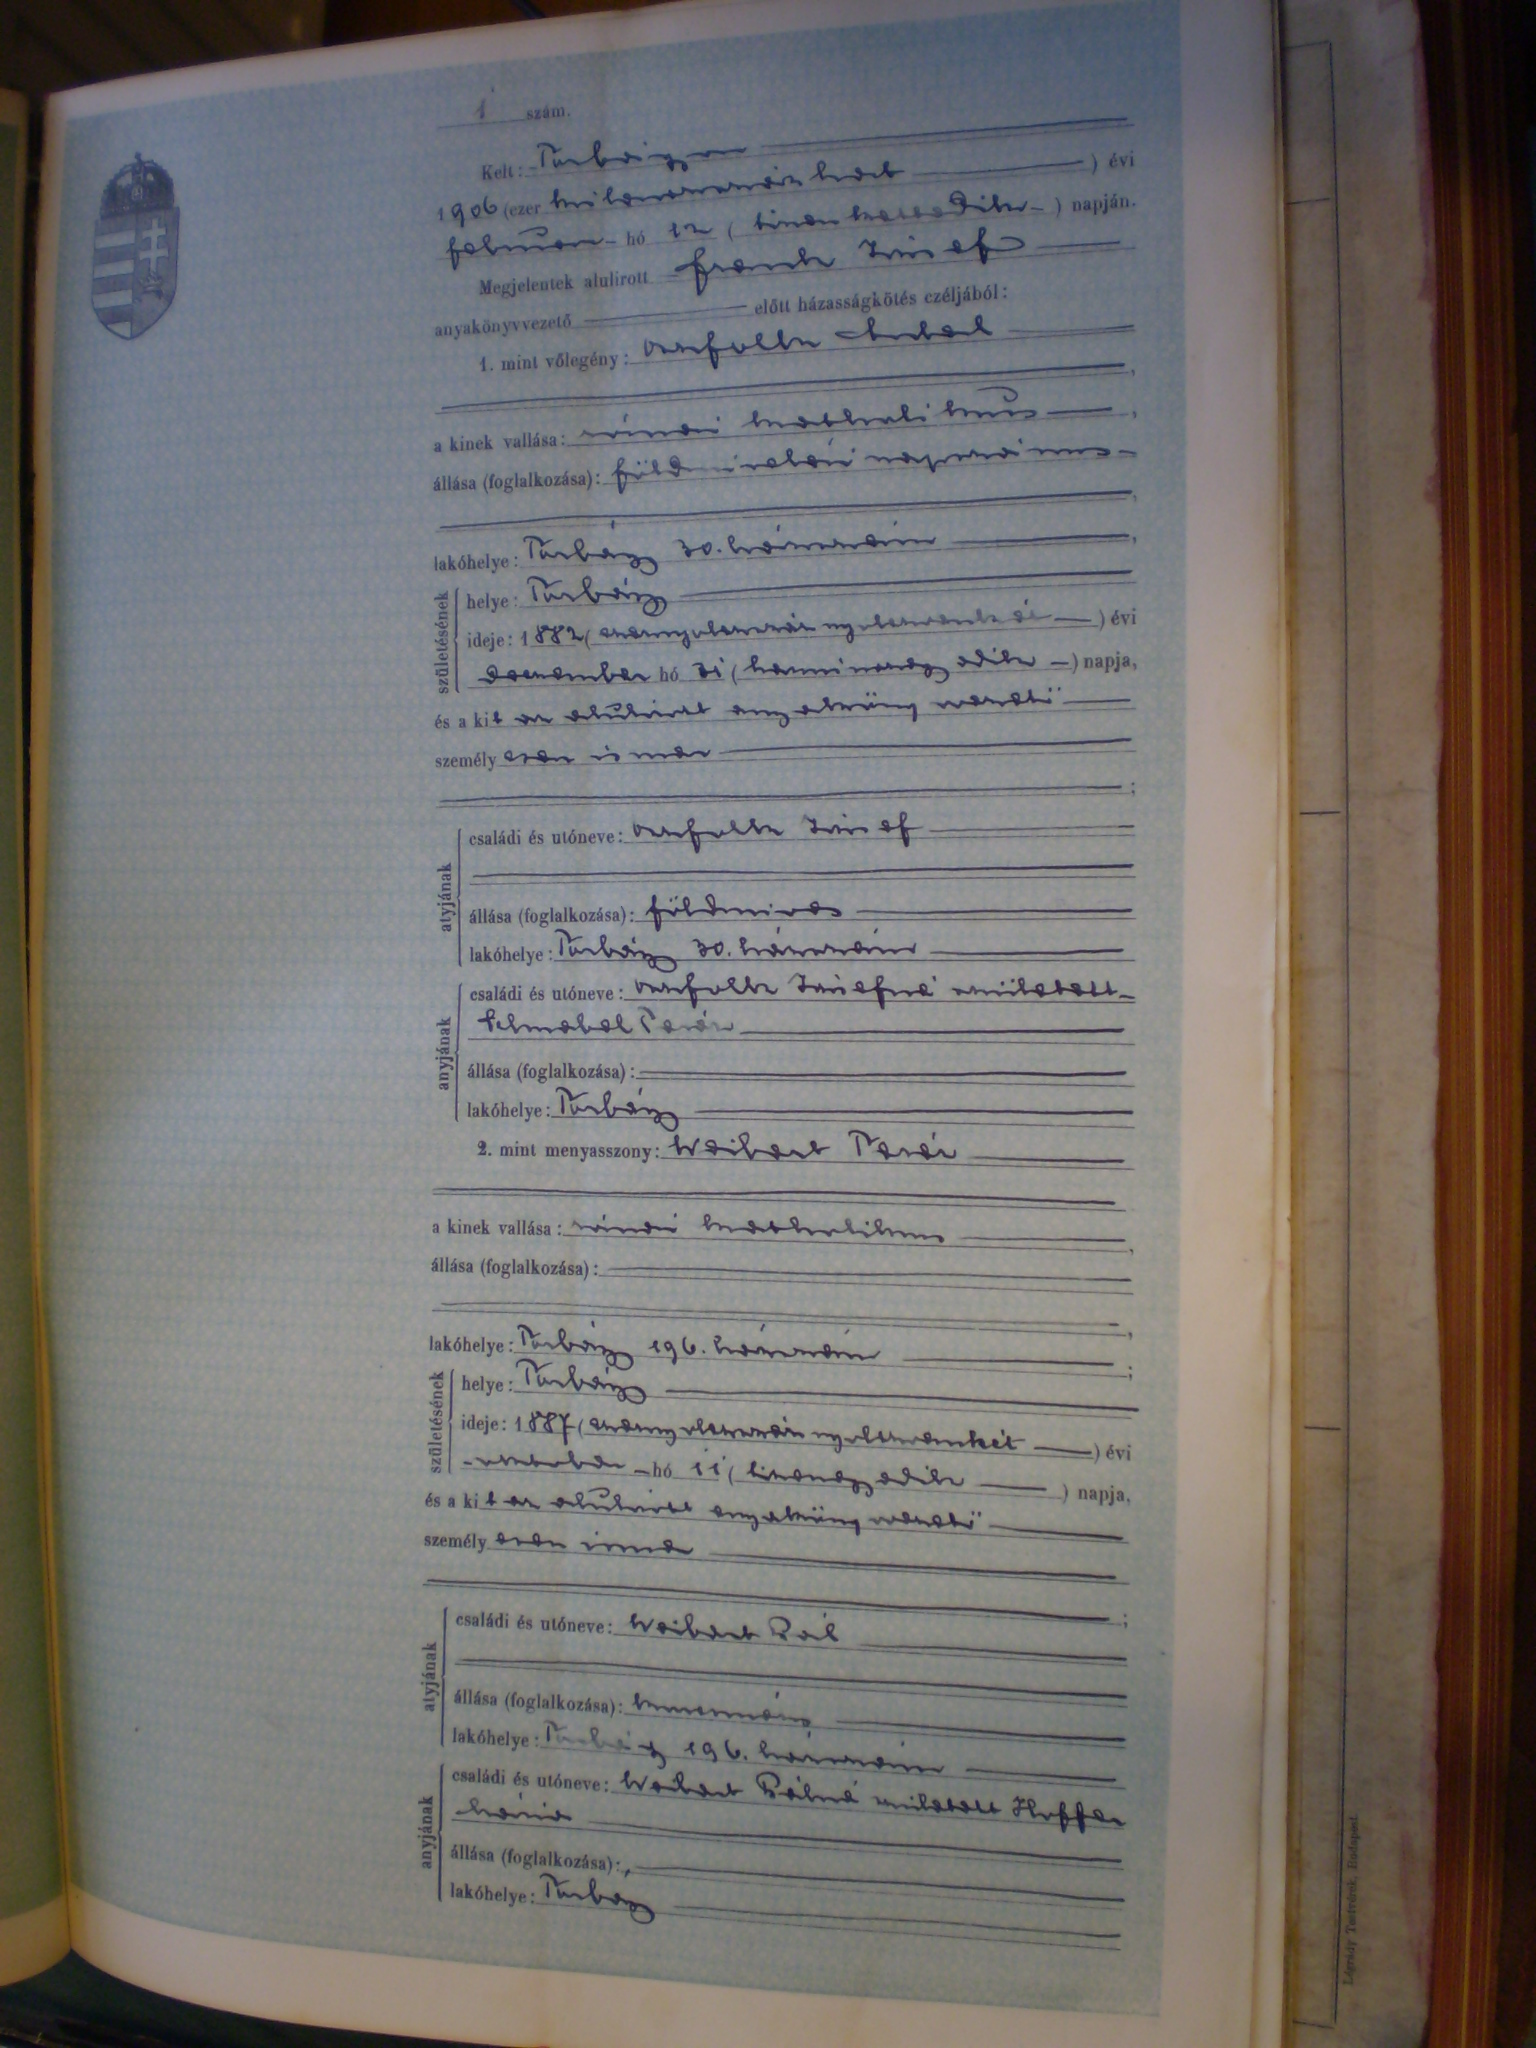 1 szám.
Kelt: Torbágyon
1906 (ezer kilencszázhat ) évi
február hó 12 ( tizenkettedik ) napján.
Megjelentek alulirott Frank József
anyakönyvvezető előtt házasságkötés czéljából:
1. mint vőlegény:
a kinek vallása: római katholikus,
állása (foglalkozása): földmívelési napszámos
lakóhelye: Torbágy 30. házszám,
születésének
helye: Torbágy
ideje: 1882 (ezernyolcszáznyolcvankét ) évi
december hó 31 (harmincegyedik ) napja,
és a kit az alulirott anyakönyvvezető
személyesen ismer
;
atyjának
családi és utóneve: József
állása (foglalkozása): földmíves
lakóhelye: Torbágy 30. házszám
anyjának
családi és utóneve: Józsefné született
Schnabel Teréz
állása (foglalkozása):
lakóhelye: Torbágy
2. mint menyasszony: Weibert Teréz
a kinek vallása: római katholikus,
állása (foglalkozása):
lakóhelye: Torbágy 196. házszám;
születésének
helye: Torbágy
ideje: 1887 (ezernyolcszáznyolcvanhét ) évi
október hó 11 (tizenegyedik ) napja,
és a kit az alulirott anyakönyvvezető
személyesen ismer
;
atyjának
családi és utóneve: Weibert Pál
állása (foglalkozása):
lakóhelye: Torbágy 196. házszám
anyjának
családi és utóneve: Weibert Pálné született Hoffer
Mária
állása (foglalkozása):
lakóhelye: Torbágy
Légrády Testvérek, Budapest.